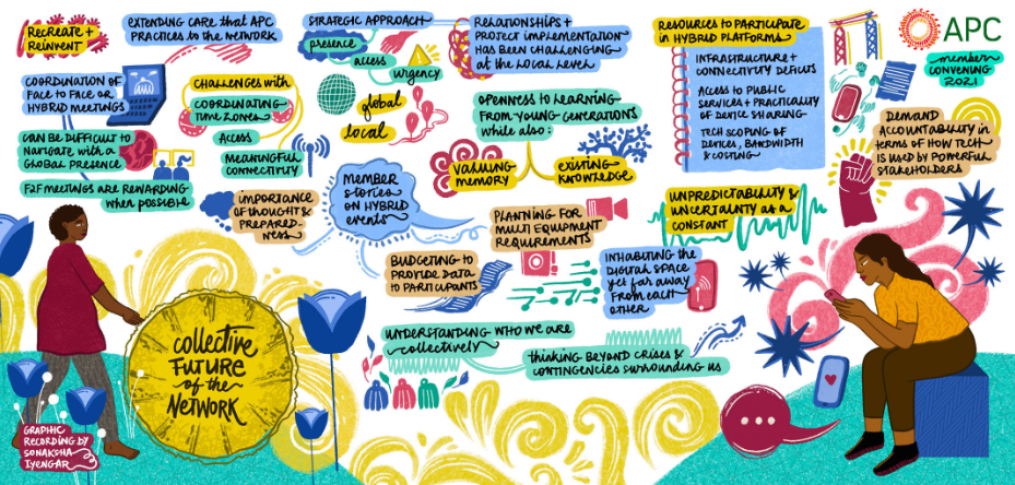 RECREATE +
REINVENT
EXTENDING CARE that APC
PRACTICES to the NETWORK
STRATEGIC APPROACH
presence
access
urgency
global
local
RELATIONSHIPS +
PROJECT IMPLEMENTATION
HAS BEEN CHALLENGING
at the LOCAL LEVEL
RESOURCES to PARTICIPATE
in HYBRID PLATFORMS
INFRASTRUCTURE +
CONNECTIVITY DEFICITS
ACCESS to PUBLIC
SERVICES + PRACTICALITY
of DEVICE SHARING
TECH SCOPING OF
DEVICES, BANDWIDTH
& COSTING
APC
member
CONVENING
2021
COORDINATION OF
FACE to FACE OR
HYBRID MEETINGS
CAN BE DIFFICULT to
NAVIGATE with a
GLOBAL PRESENCE
F2F MEETINGS ARE REWARDING
when possible
CHALLENGES with
COORDINATING
TIME ZONES
ACCESS
MEANINGFUL
CONNECTIVITY
OPENNESS to LEARNING
FROM YOUNG GENERATIONS
while also:
VALUING
MEMORY
existing
KNOWLEDGE
DEMAND
ACCOUNTABILITY in
terms of HOW TECH
IS USED by POWERFUL
STAKEHOLDERS
IMPORTANCE
of THOUGHT &
PREPARED-
NESS
MEMBER
STORIES
ON HYBRID
events
PLANNING FOR
MULTI EQUIPMENT
REQUIREMENTS
UNPREDICTABILITY &
UNCERTAINTY as a
CONSTANT
BUDGETING to
PROVIDE DATA
to PARTICIPANTS
INHABITING the
DIGITAL SPACE
yet far away
FROM EACH
OTHER
UNDERSTANDING WHO WE ARE
collectively
THINKING BEYOND CRISES &
CONTINGENCIES SURROUNDING US
collective
FUTURE
of the
NETWORK
GRAPHIC
RECORDING BY
SONAKSHA
IYENGAR